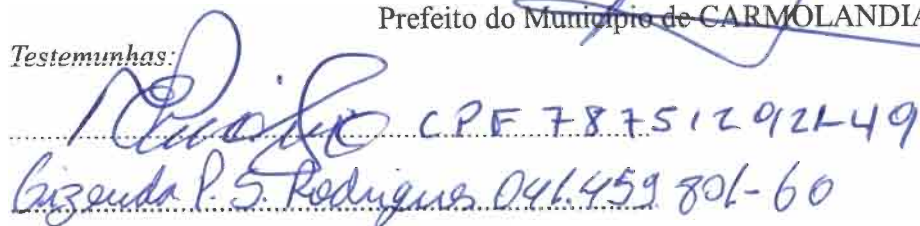 Prefeito do Município de CARMOLANDIA
Testemunhas:
CPF 787512921-49
Gizenda P. S. Rodrigues 041.459 801-60